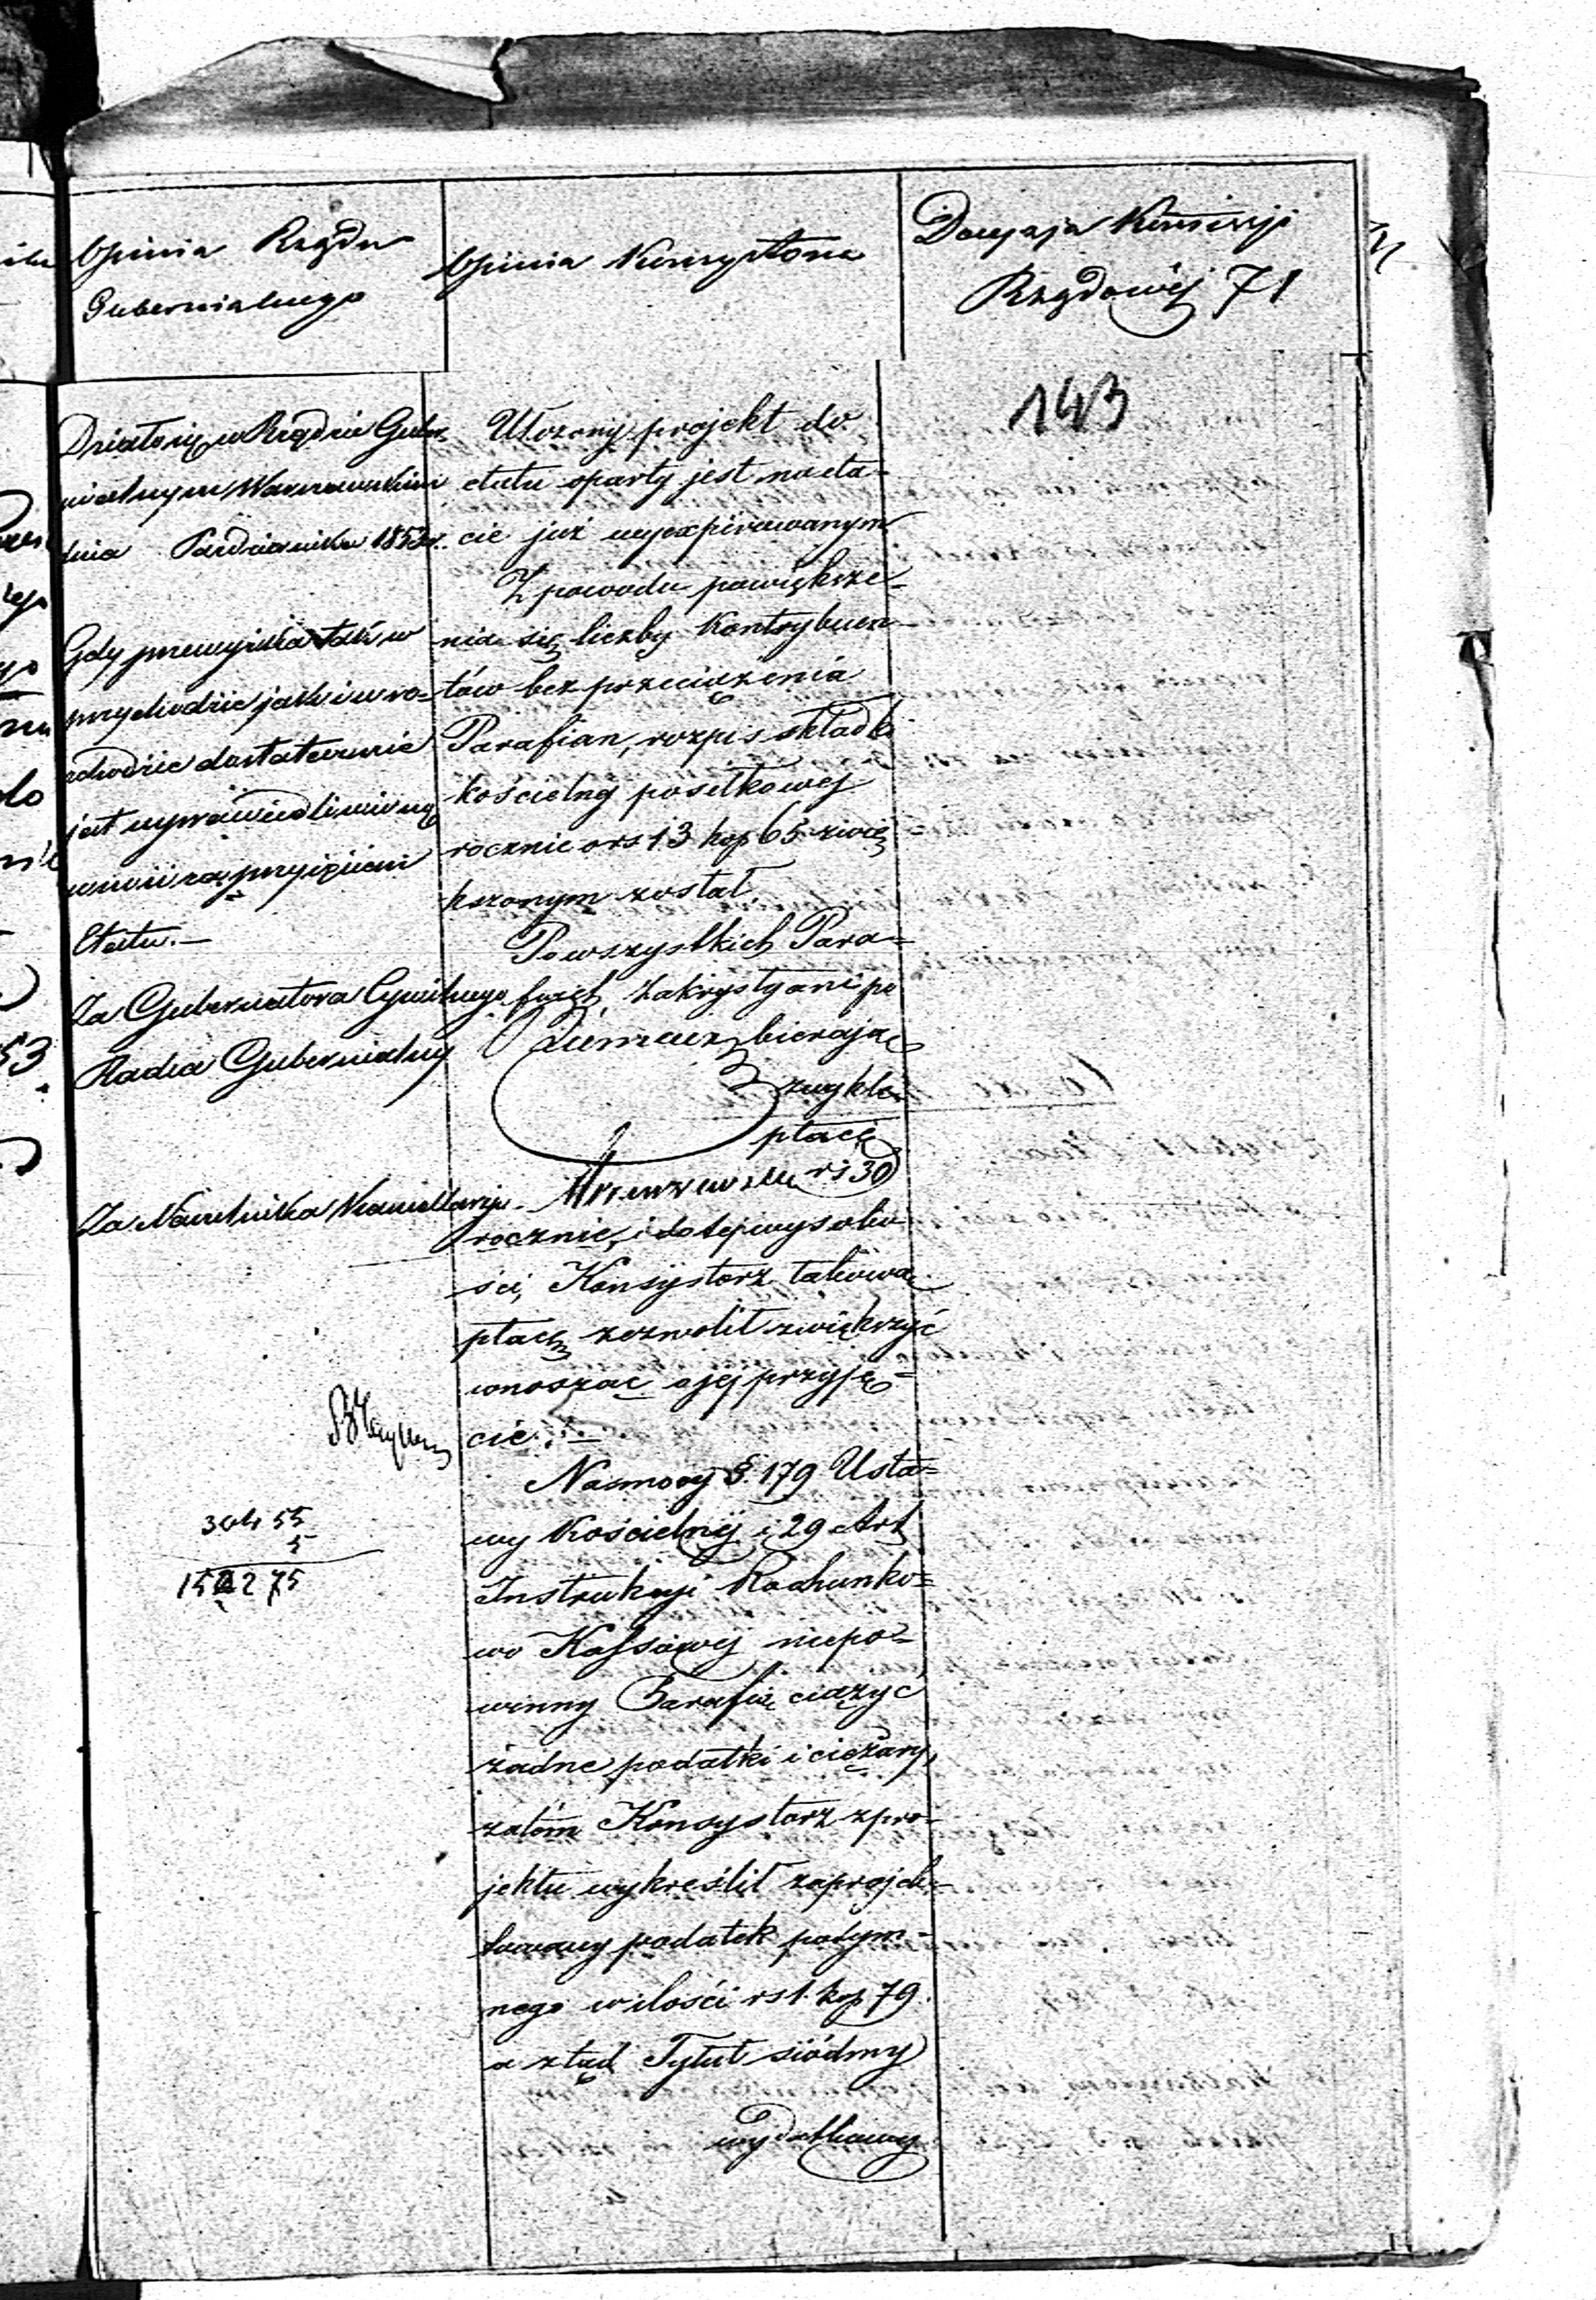 Opinia Rządu
Gubernialnego
Opinia Konsystorza
Decyzja Kommissyi
Rządowéj 71
143
Działo się w Rządzie Guber
nialnym Warszawskim
dnia Października 1853 r.
Gdy przewyżka tak w
przychodzie jak i w ro-
zchodzie dostatecznie
jest usprawiedliwioną
wnosi za przyjęciem
Etatu.—
Za Gubernatora Cywilnego
Radca Gubernialny
Za Naczelnika Kancellaryi
304 55
5
1522 75
Ułożony projekt do
etatu oparty jest na eta-
cie już wyexpirowanym
Z powodu powiększe-
nia się liczby Kontrybuen-
tów bez przeciążenia
Parafian, rozpis składki
kościelnej posiłkowej
rocznie o rs 13 kop 65 zwię
kszonym został.
Po wszystkich Para-
fiach, Zakrystyani po
bierają
zwykle
płacę
rs 30
rocznie, i do tej wysoko
ści, Konsystorz takową
płacę zezwolił zwiększyć
wnosząc o jej przyję-
cie.—
Na mocy §. 179 Usta-
wy Kościelnej i 29 Art
Instrukcyi Rachunko-
wo Kassowej niepo-
winny Parafię ciążyć
żadne podatki i ciężary,
zatém Konsystorz z pro-
jektu wykreślił zaprojek-
towany podatek podym-
nego w ilości rs 1. kop 79.
a ztąd Tytuł siódmy
wydatkowy